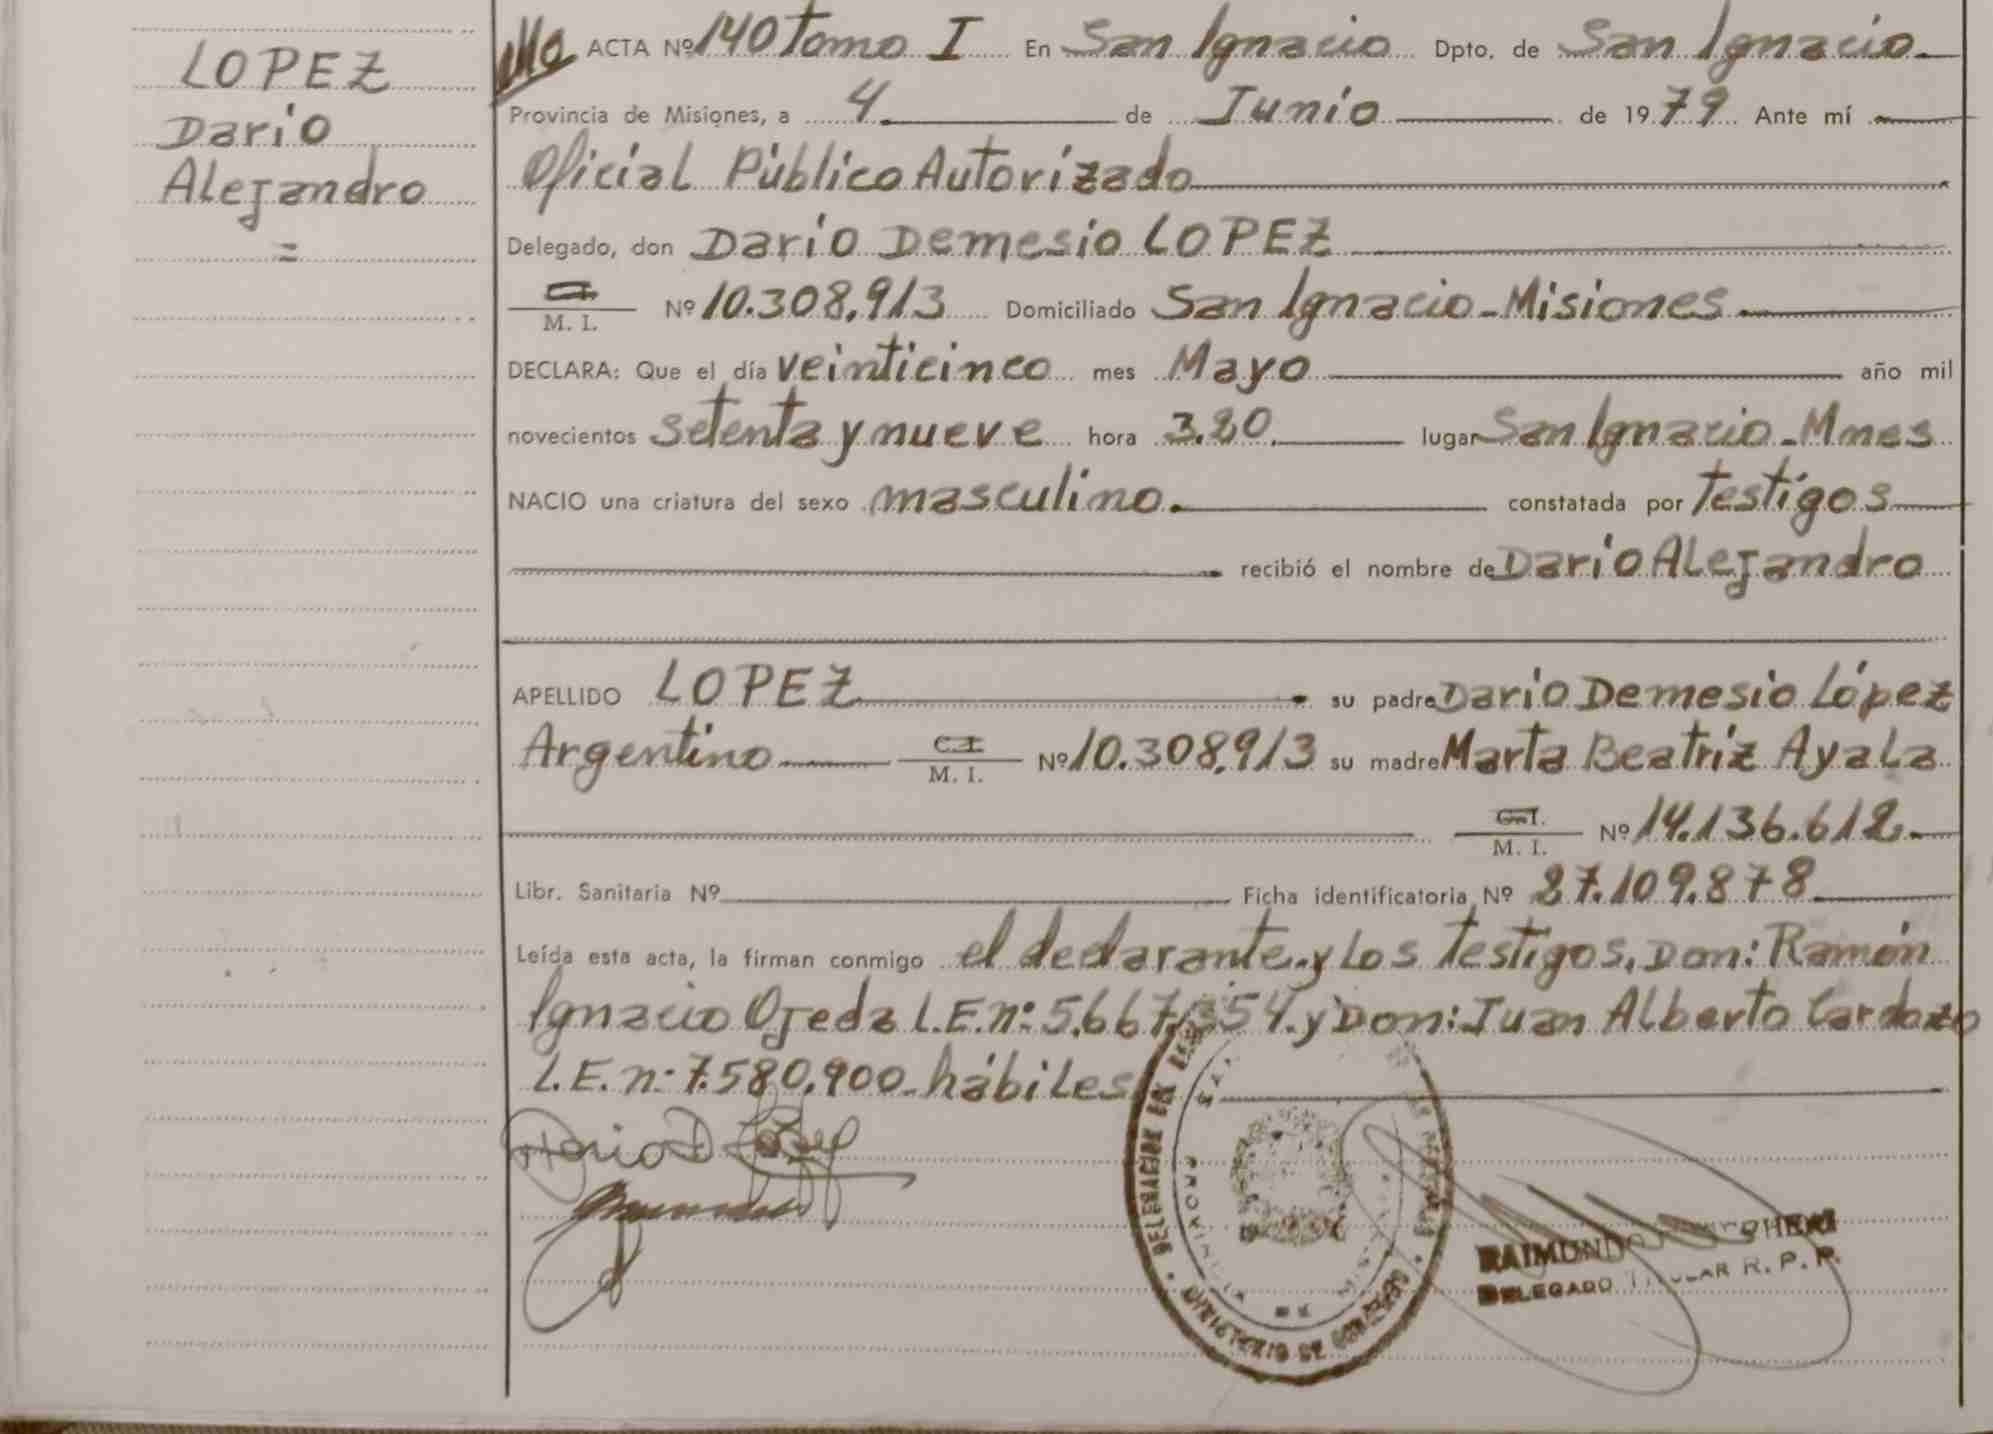 LOPEZ
Dario
Alejandro
=
ACTA Nº 140 Tomo I En San Ignacio Dpto. de San Ignacio
Provincia de Misiones, a 4 de Junio de 1979 Ante mí
Oficial Público Autorizado
Delegado, don Dario Demesio LOPEZ
C.I.
M. I. Nº 10.308.913 Domiciliado San Ignacio - Misiones
DECLARA: Que el día veinticinco mes Mayo año mil
novecientos setenta y nueve hora 3.20 lugar San Ignacio - Mnes
NACIO una criatura del sexo masculino. constatada por Testigos
recibió el nombre de Dario Alejandro
APELLIDO LOPEZ su padre Dario Demesio López
Argentino C.I. M. I. Nº 10.308.913 su madre Marta Beatriz Ayala
C.I. M. I. Nº 14.136.612
Libr. Sanitaria Nº Ficha identificatoria Nº 27.109.878
Leída esta acta, la firman conmigo el declarante y Los Testigos, Don: Ramón
Ignacio Ojeda L.E.nº: 5.667.354. y Don: Juan Alberto Cardozo
L.E. nº 7.580.900 - hábiles
Dario D Lopez
MINISTERIO DE GOBIERNO
RAIMUNDO
DELEGADO TITULAR R. P. P.